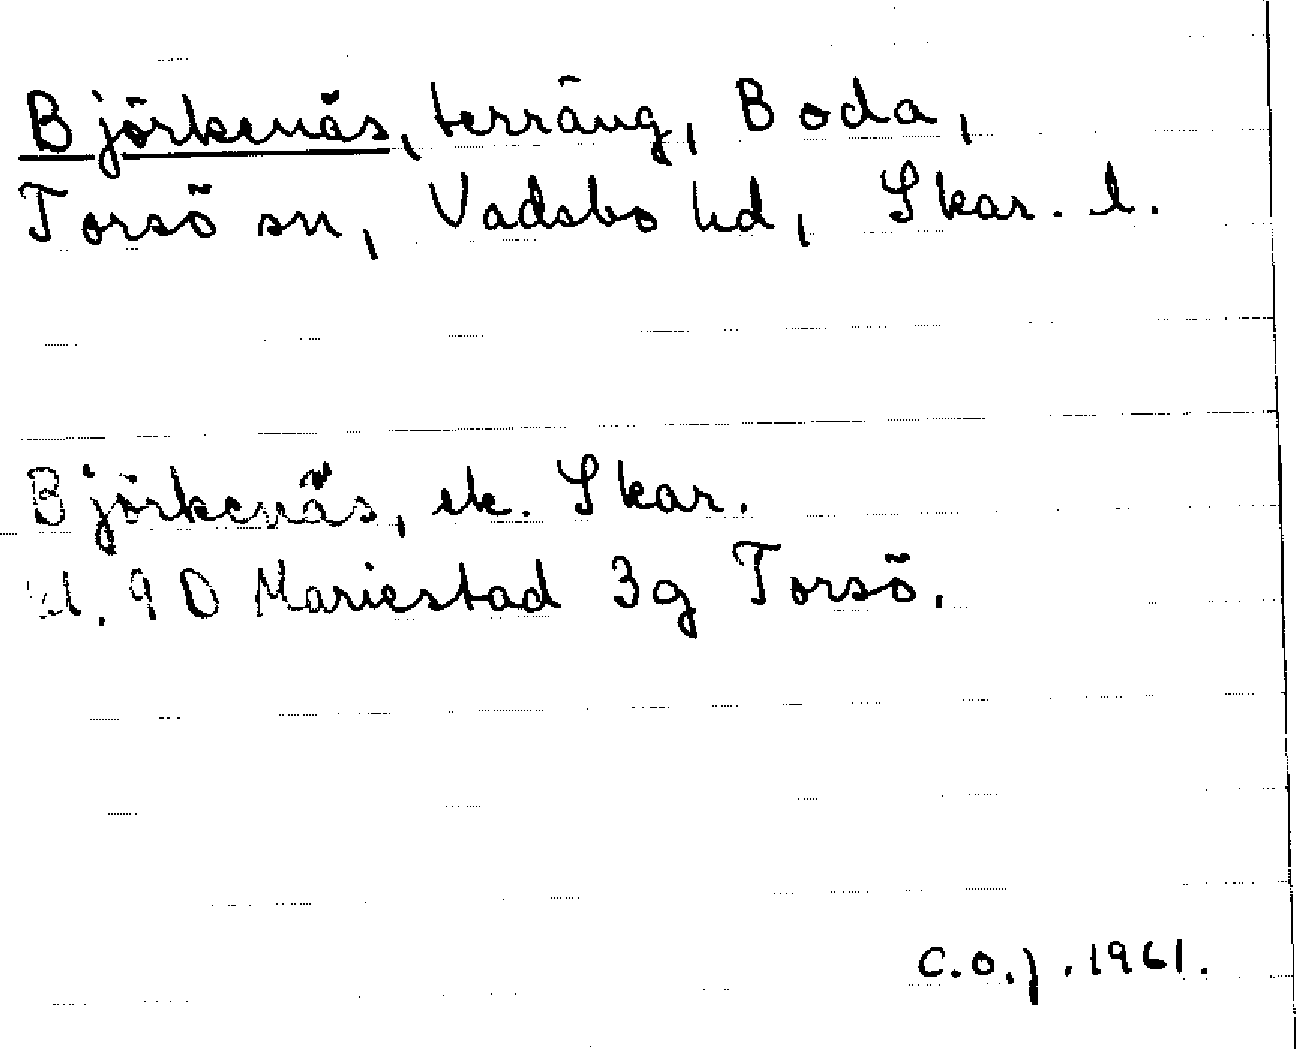 Björkenäs, terräng, Boda,
Torsö sn, Vadsbo hd, Skar. l.
Björkenäs, ek. Skar.
bl. 9D Mariestad 3g Torsö.
C.O.J. 1961.